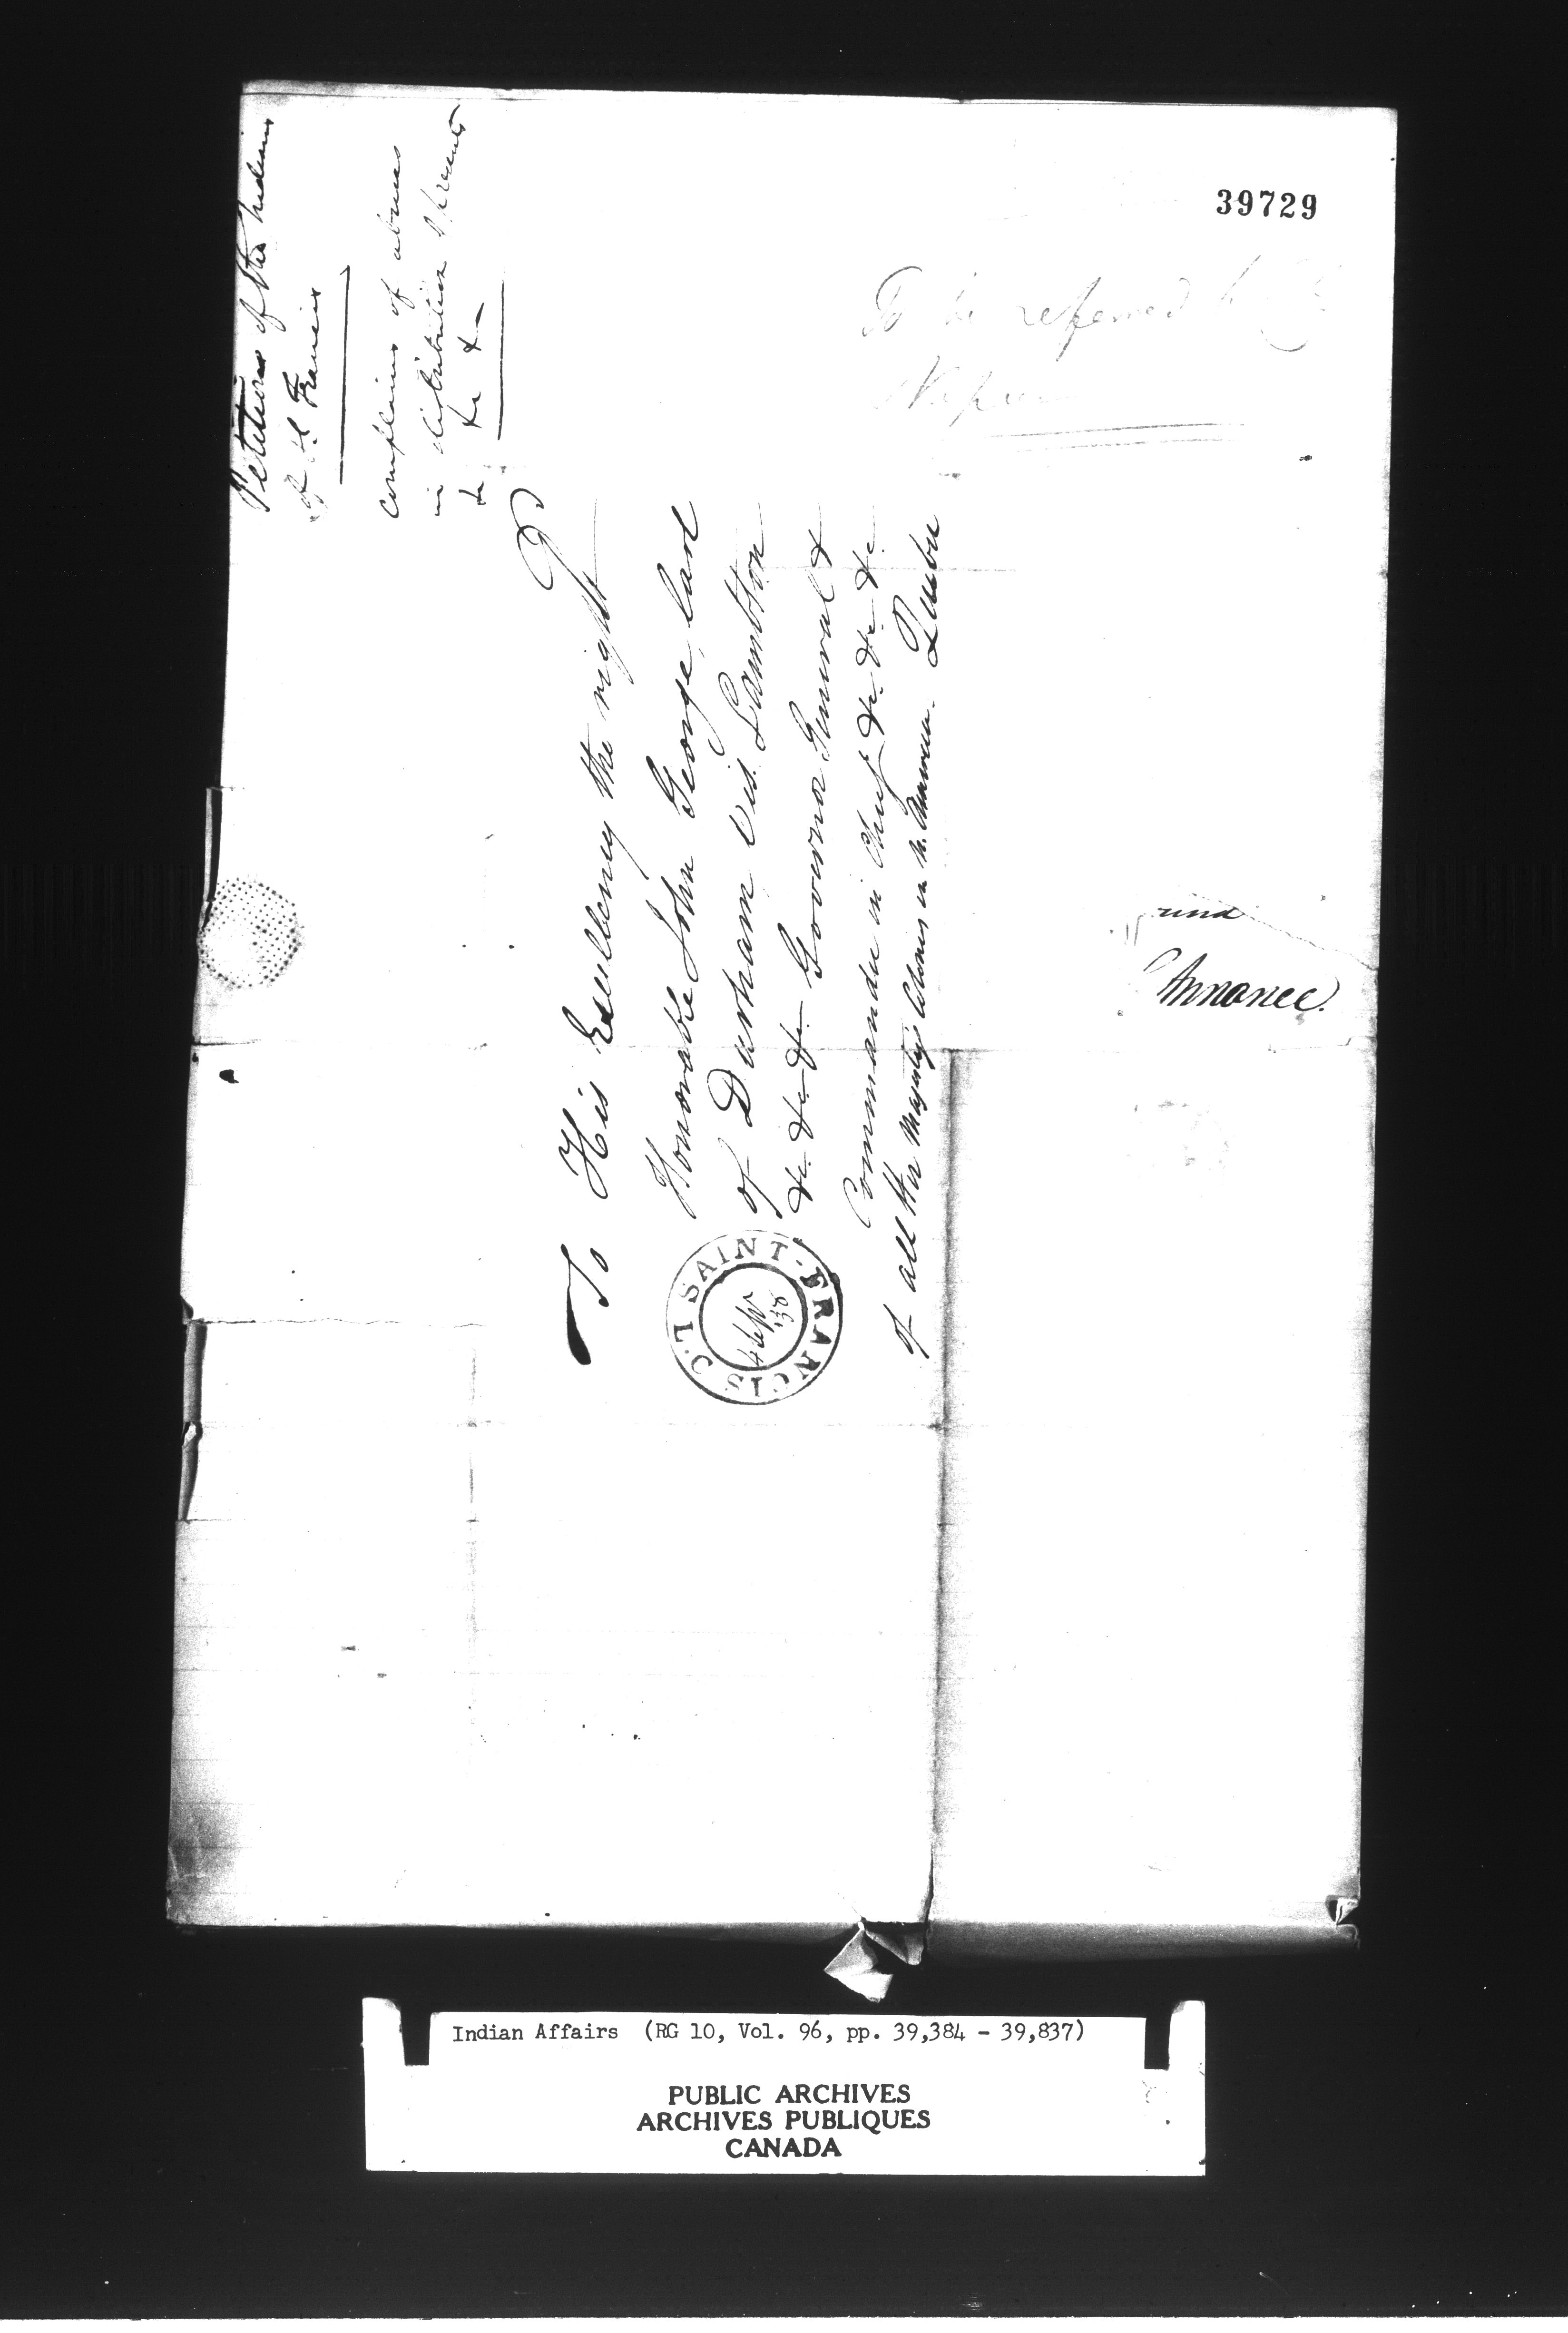 39729
Petition of the Indians
of St Francis
complains of abuses
in distribution of presents
&c &c &c
To be referred to
To His Excellency the right
Honorable John George, Earl
of Durham Vis. Lambton
&c &c &c Governor General &
Commander in Chief &c &c &c
of all Her Majesty's Colonies in N. America. Quebec
SAINT-FRANCIS L.C.
4 Sep
'38
Annance.
Indian Affairs (RG 10, Vol. 96, pp. 39,384 - 39,837)
PUBLIC ARCHIVES
ARCHIVES PUBLIQUES
CANADA